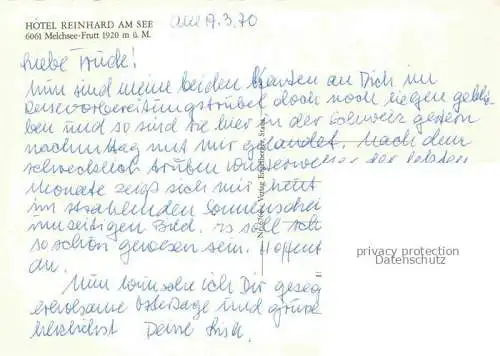 HOTEL REINHARD AM SEE
6061 Melchsee-Frutt 1920 m ü. M.
am 19.3.70
Liebe Trude!
Nun sind meine beiden Karten an Dich im
Reisevorbereitungstrubel doch noch liegen geblie
ben und so sind sie hier in der Schweiz gestern
nachmittag mit mir gelandet. Nach dem
schrecklich trüben Winterwetter der letzten
Monate zeigt sich mir heut
im strahlenden Sonnenschei
umseitigen Bild. Es soll
so schön gewesen sein. Hoffent
an.
Nun wünsche ich Dir geseg
erholsame Ostertage und grüsse
herzlichst Deine
privacy protection
Datenschutz